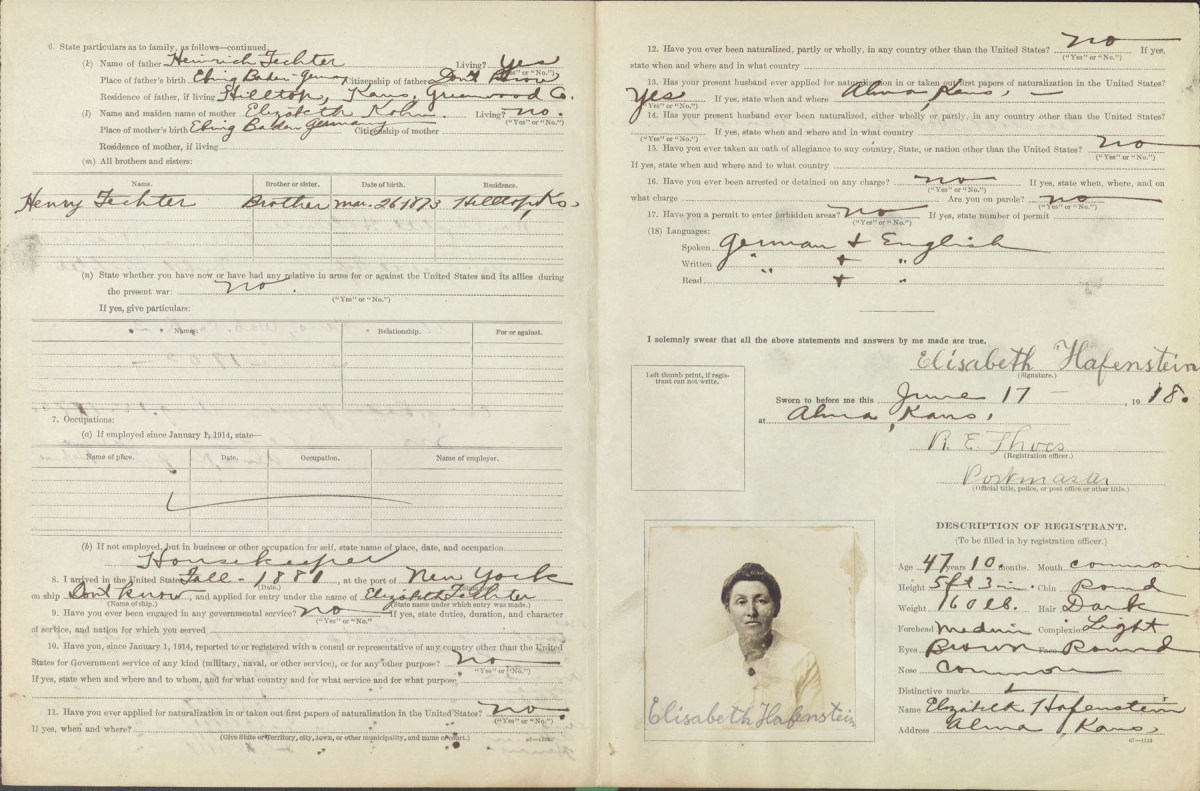 6. State particulars as to family, as follows—continued.
(k) Name of father Heinrich Fechter Living? Yes
("Yes" or "No.")
Place of father's birth Ebing Baden-Germany Citizenship of father Don't Know
Residence of father, if living Hilltop, Kans, Greenwood Co.
(l) Name and maiden name of mother Elizabeth Kohm. Living? no.
("Yes" or "No.")
Place of mother's birth Ebing Baden Germany Citizenship of mother
Residence of mother, if living
(m) All brothers and sisters:
Name. Brother or sister. Date of birth. Residence.
Henry Fechter Brother Mar. 26 1873 Hilltop, Ks
(n) State whether you have now or have had any relative in arms for or against the United States and its allies during
the present war: no.
("Yes" or "No.")
If yes, give particulars:
Name. Relationship. For or against.
7. Occupations:
(a) If employed since January 1, 1914, state—
Name of place. Date. Occupation. Name of employer.
(b) If not employed, but in business or other occupation for self, state name of place, date, and occupation
Housekeeper
8. I arrived in the United States Fall - 1881, at the port of New York
(Date.)
on ship Don't know, and applied for entry under the name of Elizabeth Fechter
(Name of ship.) (State name under which entry was made.)
9. Have you ever been engaged in any governmental service? no If yes, state duties, duration, and character
("Yes" or "No."
of service, and nation for which you served
10. Have you, since January 1, 1914, reported to or registered with a consul or representative of any country other than the United
States for Government service of any kind (military, naval, or other service), or for any other purpose? no
("Yes" or "No.")
If yes, state when and where and to whom, and for what country and for what service and for what purpose
11. Have you ever applied for naturalization or taken out first papers of naturalization in the United States? no.
("Yes" or "No.")
If yes, when and where?
(Give State or Territory, city, town, or other municipality, and name of court.)
12. Have you ever been naturalized, partly or wholly, in any country other than the United States? no If yes,
("Yes" or "No.")
state when and where and in what country
13. Has your present husband ever applied for naturalization in or taken out first papers of naturalization in the United States?
Yes If yes, state when and where Alma, Kans, —
("Yes" or "No.")
14. Has your present husband ever been naturalized, either wholly or partly, in any country other than the United States?
If yes, state when and where and in what country
("Yes" or "No.")
15. Have you ever taken an oath of allegiance to any country, State, or nation other than the United States? no
("Yes" or "No.")
If yes, state when and where and to what country
16. Have you ever been arrested or detained on any charge? no If yes, state when, where, and on
("Yes" or "No.")
what charge Are you on parole? no
("Yes" or "No.")
17. Have you a permit to enter forbidden areas? no If yes, state number of permit
("Yes" or "No.")
(18) Languages:
Spoken German + English
Written " + "
Read " + "
I solemnly swear that all the above statements and answers by me made are true.
Elisabeth Hafenstein
(Signature.)
Left thumb print, if regis-
trant can not write.
Sworn to before me this June 17 —, 1918.
at Alma, Kans,
R. E. Thoes
(Registration officer.)
Postmaster
(Official title, police, or post office or other title.)
DESCRIPTION OF REGISTRANT.
(To be filled in by registration officer.)
Age 47 years 10 months. Mouth common
Height 5 ft 3 in. Chin Round
Weight 160 lb. Hair Dark
Forehead Medium Complexion Light
Eyes Brown Face Round
Nose common
Distinctive marks
Name Elizabeth Hafenstein
Address Alma Kans,
Elisabeth Hafenstein